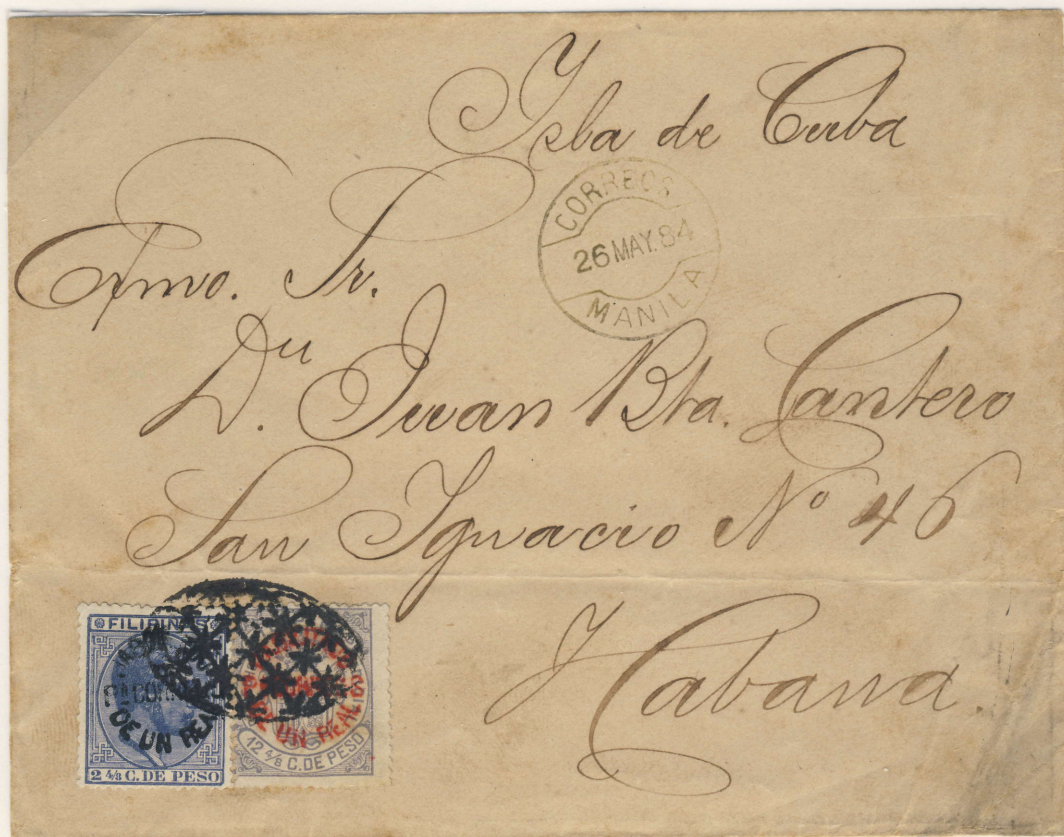 Isla de Cuba
CORREOS
26 MAY. 84
MANILA
Exmo. Sr.
Dn. Juan Bta. Cantero
San Ignacio No 46
Habana.
FILIPINAS
DE UN REAL
2 4/8 C. DE PESO
DE UN REAL
12 4/8 C. DE PESO